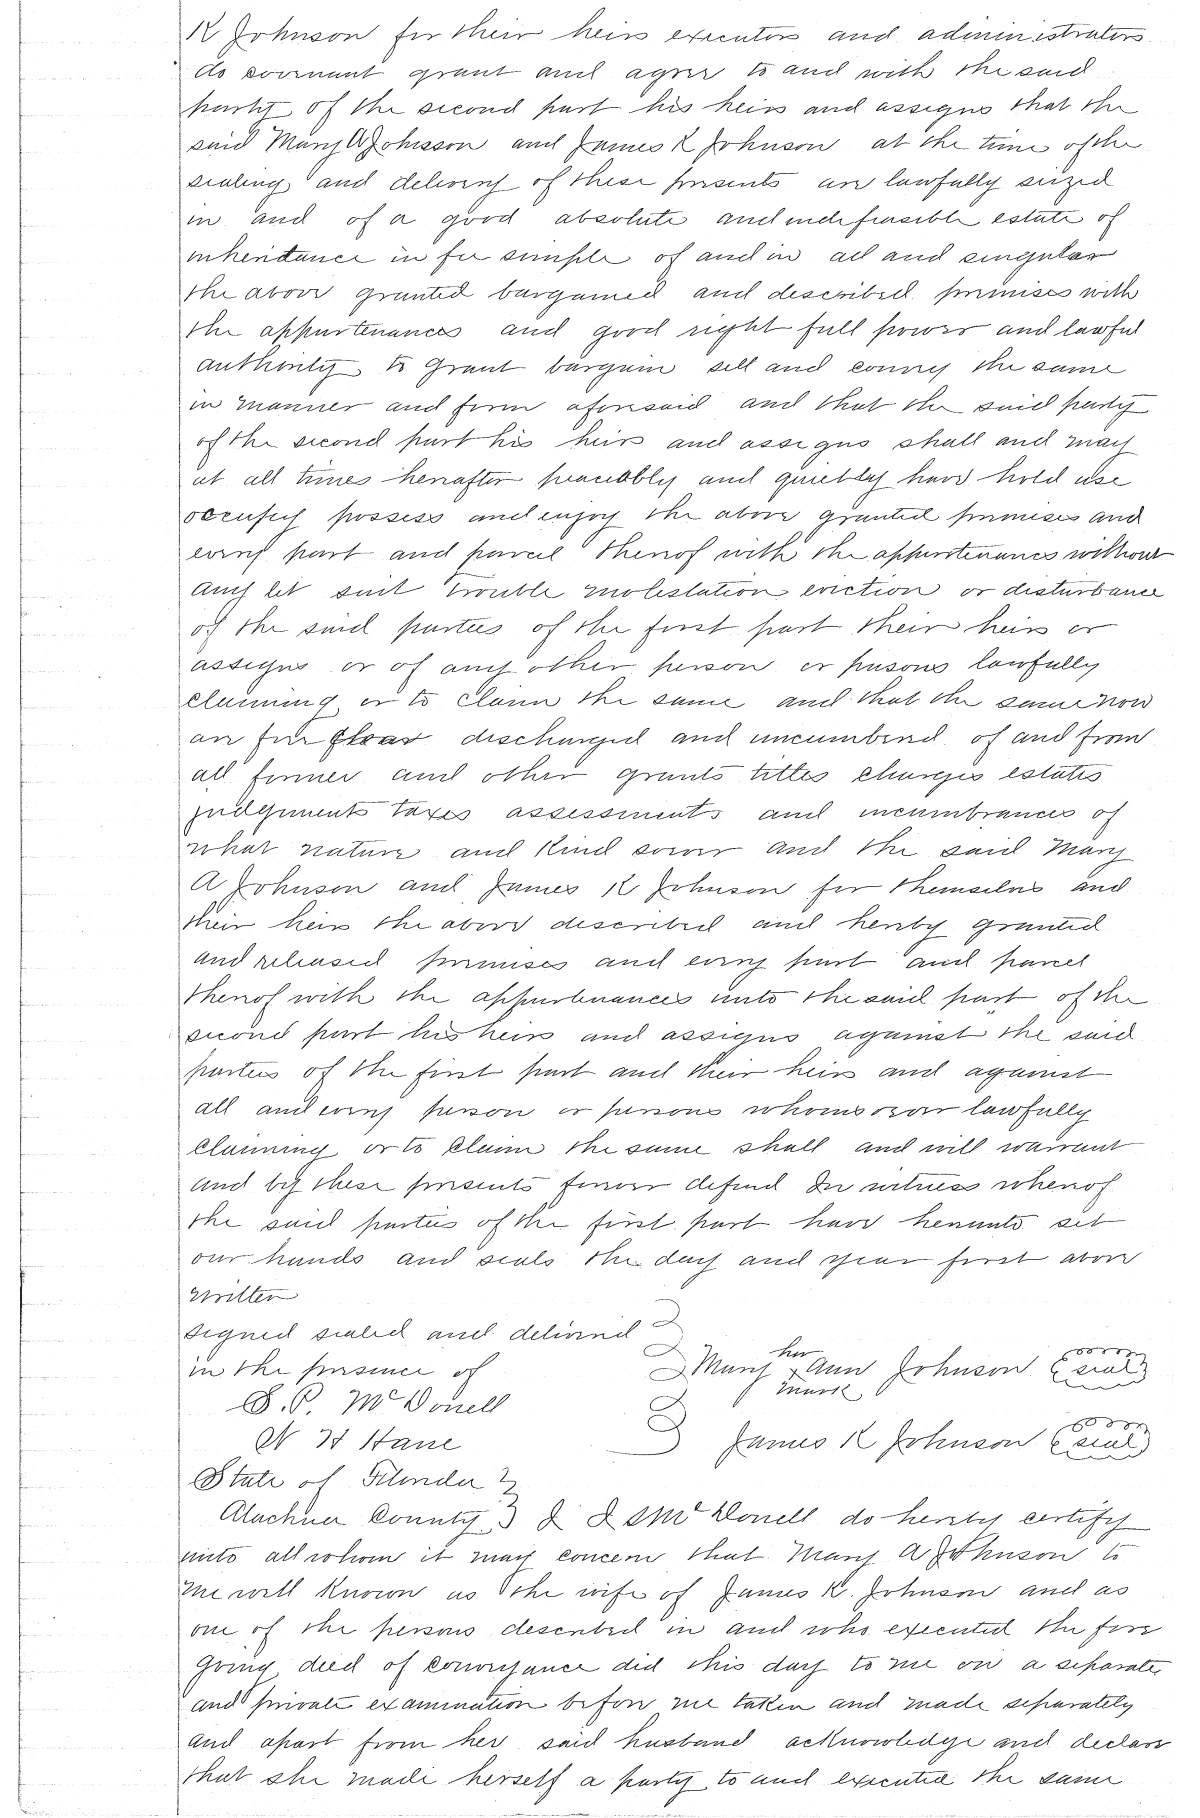 K Johnson for their heirs executors and administrators
do covenant grant and agree to and with the said
party of the second part his heirs and assigns that the
said Mary A Johnson and James K Johnson at the time of the
sealing and delivery of these presents are lawfully seized
in and of a good absolute and indefeasible estate of
inheritance in fee simple of and in all and singular
the above granted bargained and described premises with
the appurtenances and good right full power and lawful
authority to Grant bargain sell and convey the same
in manner and form aforesaid and that the said party
of the second part his heirs and assigns shall and may
at all times hereafter peacably and quietly have hold use
occupy possess and enjoy the above granted premises and
every part and parcel thereof with the appurtenances without
any let suit trouble molestation eviction or disturbance
of the said parties of the first part their heirs or
assigns or of any other person or persons lawfully
claiming or to claim the same and that the same now
are free clear discharged and unincumbered of and from
all former and other grants titles charges estates
judgements taxes assessments and incumbrances of
what nature and kind soever and the said Mary
A Johnson and James K Johnson for themselves and
their heirs the above described and hereby granted
and released premises and every part and parcel
thereof with the appurtenances unto the said part of the
second part his heirs and assigns against the said
parties of the first part and their heirs and against
all and every person or persons whomsoever lawfully
claiming or to claim the same shall and will warrant
and by these presents forever defend In witness whereof
the said parties of the first part have hereunto set
our hands and seals the day and year first above
written
signed sealed and delivered
in the presence of
her
Mary x Ann Johnson seal
mark
S. P. McDonell
N H Hane
James K Johnson seal
State of Florida
Alachua County I S McDonell do hereby certify
unto all whom it may concern that Mary A Johnson to
me well known as the wife of James K. Johnson and as
one of the persons described in and who executed the fore
going deed of conveyance did this day to me on a separate
and private examination before me taken and made separately
and apart from her said husband acknowledge and declare
that she made herself a party to and executed the same